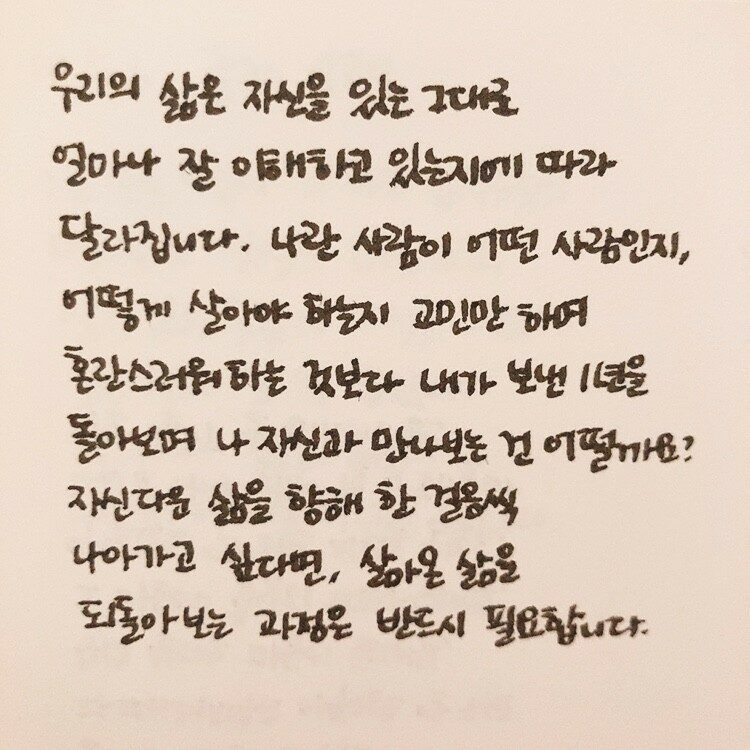 우리의 삶은 자신을 있는 그대로
얼마나 잘 이해하고 있는지에 따라
달라집니다. 나란 사람이 어떤 사람인지,
어떻게 살아야 하는지 고민만 하며
혼란스러워하는 것보다 내가 보낸 1년을
돌아보며 나 자신과 만나보는 건 어떨까요?
자신다운 삶을 향해 한 걸음씩
나아가고 싶다면, 살아온 삶을
되돌아보는 과정은 반드시 필요합니다.